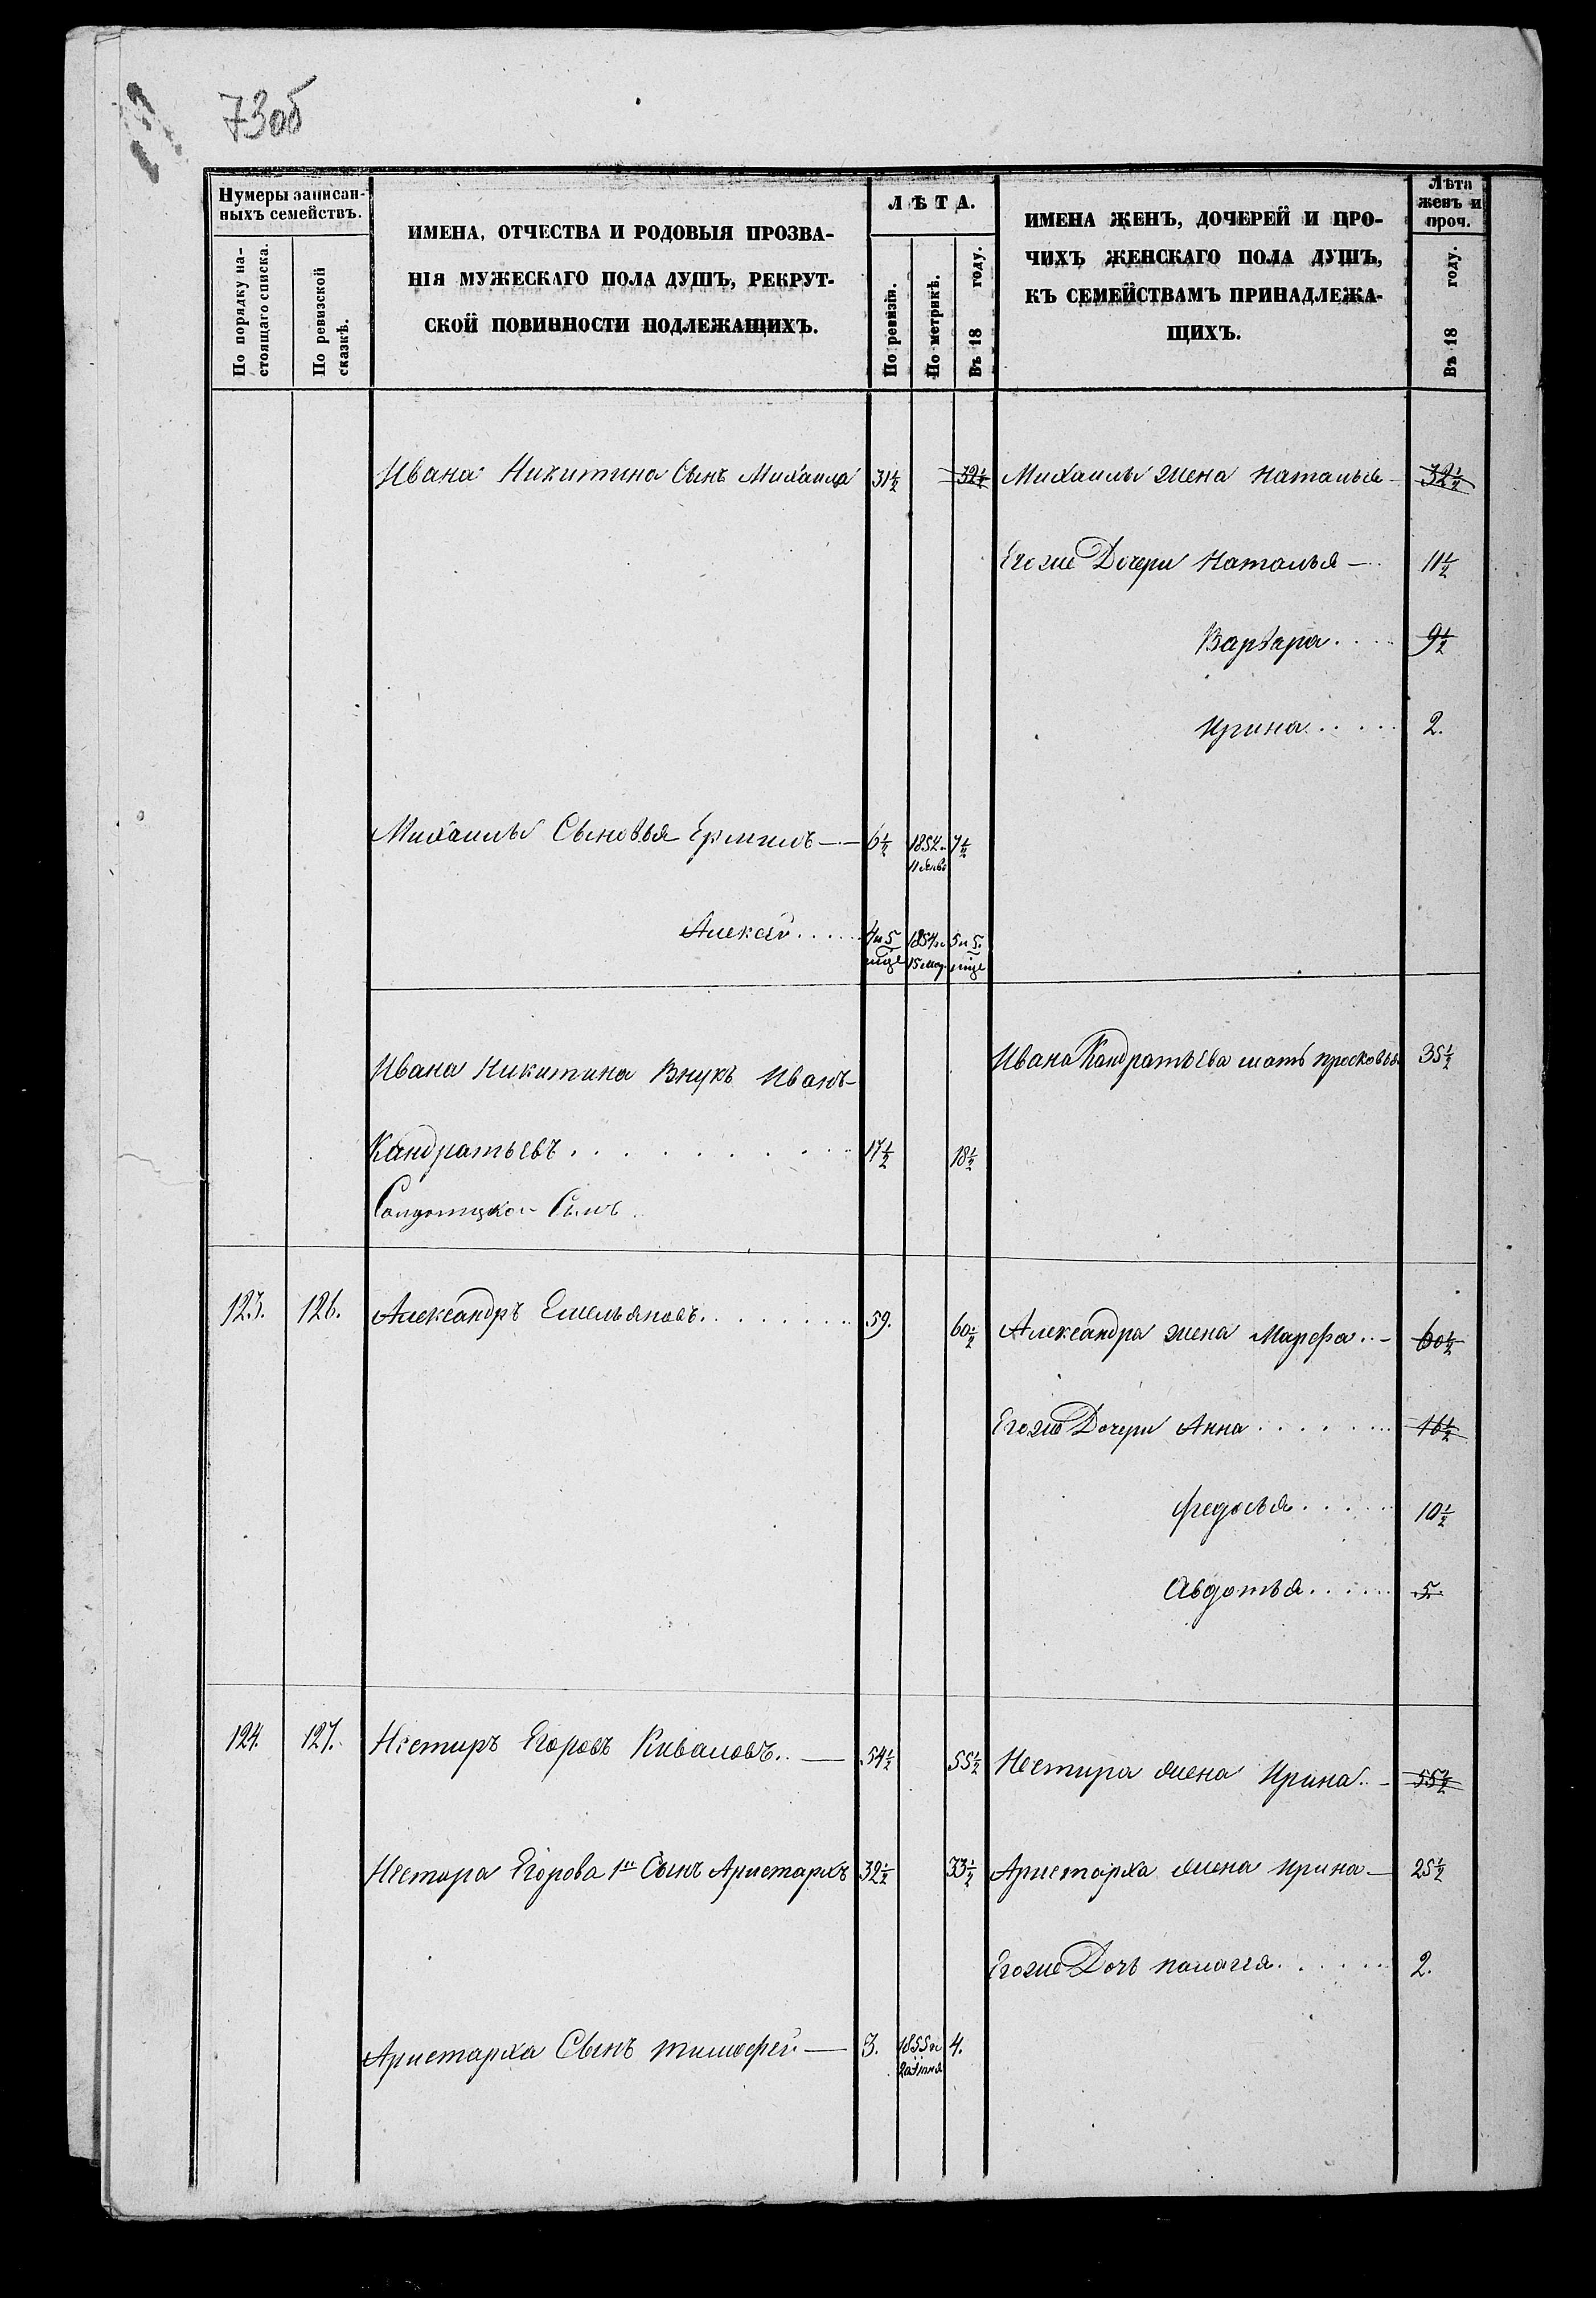 73об
Нумеры записан-
ныхъ семействъ.
По порядку на-
стоящаго списка.
По ревизской
сказкѣ.
ИМЕНА, ОТЧЕСТВА И РОДОВЫЯ ПРОЗВА-
НІЯ МУЖЕСКАГО ПОЛА ДУШЪ, РЕКРУТ-
СКОЙ ПОВИННОСТИ ПОДЛЕЖАЩИХЪ.
ЛѢТА.
По ревизіи.
По метрикѣ.
Въ 18 году.
ИМЕНА ЖЕНЪ, ДОЧЕРЕЙ И ПРО-
ЧИХЪ ЖЕНСКАГО ПОЛА ДУШЪ,
КЪ СЕМЕЙСТВАМЪ ПРИНАДЛЕЖА-
ЩИХЪ.
Лѣта
женъ и
проч.
Въ 18 году.
Ивана Никитина Сынъ Михаила 31½ 32½ Михаилы жена Наталья 32½
Егоже Дочери Наталья 11½
Варвара 9½
Ирина 2.
Михаилы Сыновья Ермилъ 6½ 1852. 7½
Алексѣй 4 и 5 1854 5 и 5.
Ивана Никитина Внукъ Иванъ Ивана Кандратьева мать Просковья 35½
Кандратьевъ 17½ 18½
Солдатской Сынъ
123. 126. Александръ Емельяновъ 59. 60½ Александра жена Марфа 60½
Егоже Дочери Анна 16½
Федосья 10½
Авдотья 5.
124. 127. Нестиръ Егоровъ Киваловъ. 54½ 55½ Нестира жена Ирина 55½
Нестора Егорова 1й Сынъ Аристархъ 32½ 33½ Аристарха жена Ирина 25½
Егоже Дочь Палагея 2.
Аристарха Сынъ Тимофей 3. 1855 4.